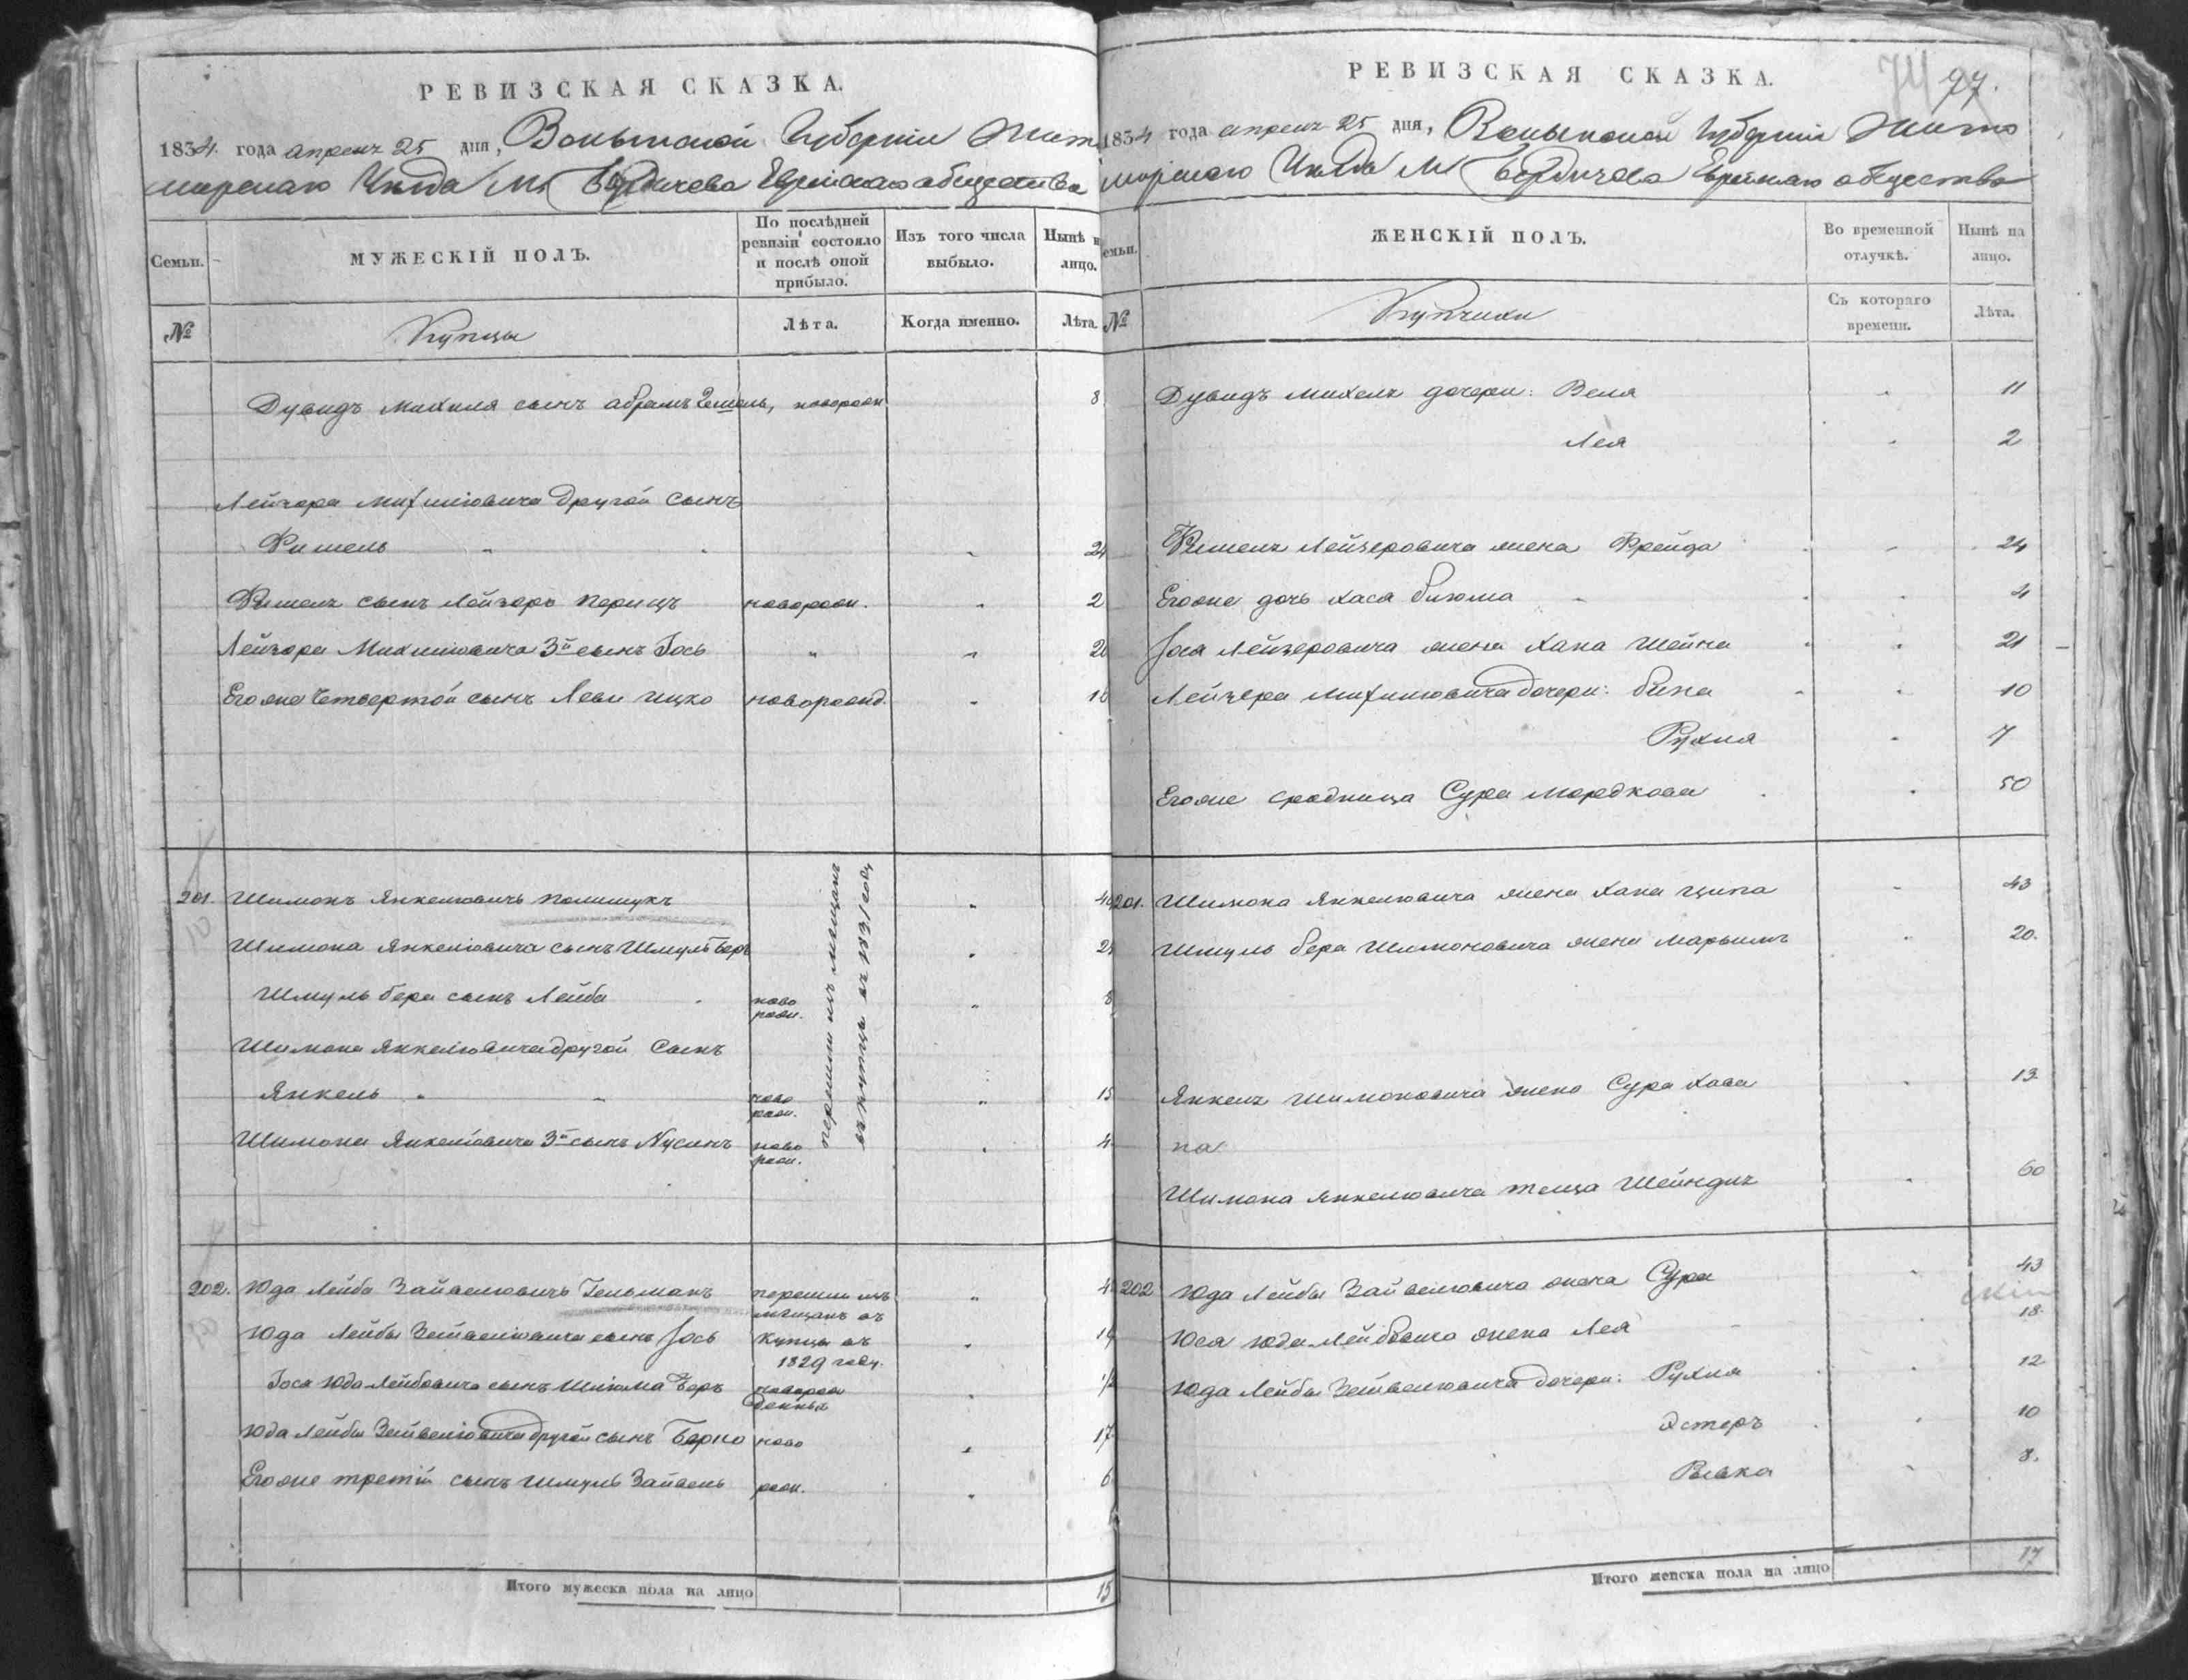 РЕВИЗСКАЯ СКАЗКА.
1834 года апреля 25 дня, Волынской Губернии Жито
мирскаго Уѣзда М. Бердичева Еврейскаго общества
Семьи.
МУЖЕСКІЙ ПОЛЪ.
По послѣдней ревизіи состояло и послѣ оной прибыло.
Изъ того числа выбыло.
Нынѣ на лицо.
№
Купцы
Лѣта.
Когда именно.
Лѣта.
Дувидъ Михеля сынъ Абрамъ новорожд 8
Лейзора Михелювича другой сынъ
Фишель 24
Фишель сынъ Лейзоръ Перецъ новорожд. 2
Лейзора Михелювича 3й сынъ Іось 20
Егоже Четвертой сынъ Леви Ицко новорожд. 10
201. Шимонъ Янкелювичъ Полищукъ
Шимона Янкелювича сынъ Шмуль Беръ
Шмуль Бера сынъ Лейба ново рожд. 8
Шимона Янкелювича другой Сынъ
Янкель ново рожд. 15
Шимона Янкелювича 3й сынъ Нусинъ ново рожд. 4
перешли изъ мещанъ
въ купцы въ 1831 году
202. Юда Лейба Зайвелювичъ Гельманъ перешли изъ
мещанъ въ
Юда Лейбы Зейвелювича сынъ Іось купцы въ
1829 году.
Іося Юда Лейбовича сынъ Шлюма Беръ новорож
денный ½
Юда Лейбы Зейвелювича другой сынъ Берко ново 17
Егоже третій сынъ Шмуль Зайвель рожд. 6
Итого мужеска пола на лицо 15
РЕВИЗСКАЯ СКАЗКА.
97.
1834 года апреля 25 дня, Волынской Губерніи Жито
мирскаго Уѣзда М. Бердичева Еврейскаго общества
Семьи.
ЖЕНСКІЙ ПОЛЪ.
Во временной отлучкѣ.
Нынѣ на лицо.
№
Купчихи
Съ котораго времени.
Лѣта.
Дувидъ Михеля дочери: Беля 11
Лея 2
Фишеля Лейзеровича жена Фрейда 24
Егоже дочь Хася Блюма 4
Іося Лейзеровича жена Хана Шейна 21
Лейзера Михелювича дочери: Бина 10
Рухля 7
Егоже сродница Сура Мордкова 50
201. Шимона Янкелювича жена Хана Ципа 43
Шмуль Бера Шимоновича жена Марьямъ 20.
Янкель Шимоновича жена Сура Хава 13
на
Шимона Янкелювича теща Шейндля 60
202 Юда Лейбы Зайвелювича жена Сура 43
Юся Юда Лейбовича жена Лея 18
Юда Лейбы Зейвелювича дочери: Рухля 12
Эстеръ 10
Ривка 8.
Итого женска пола на лицо 17